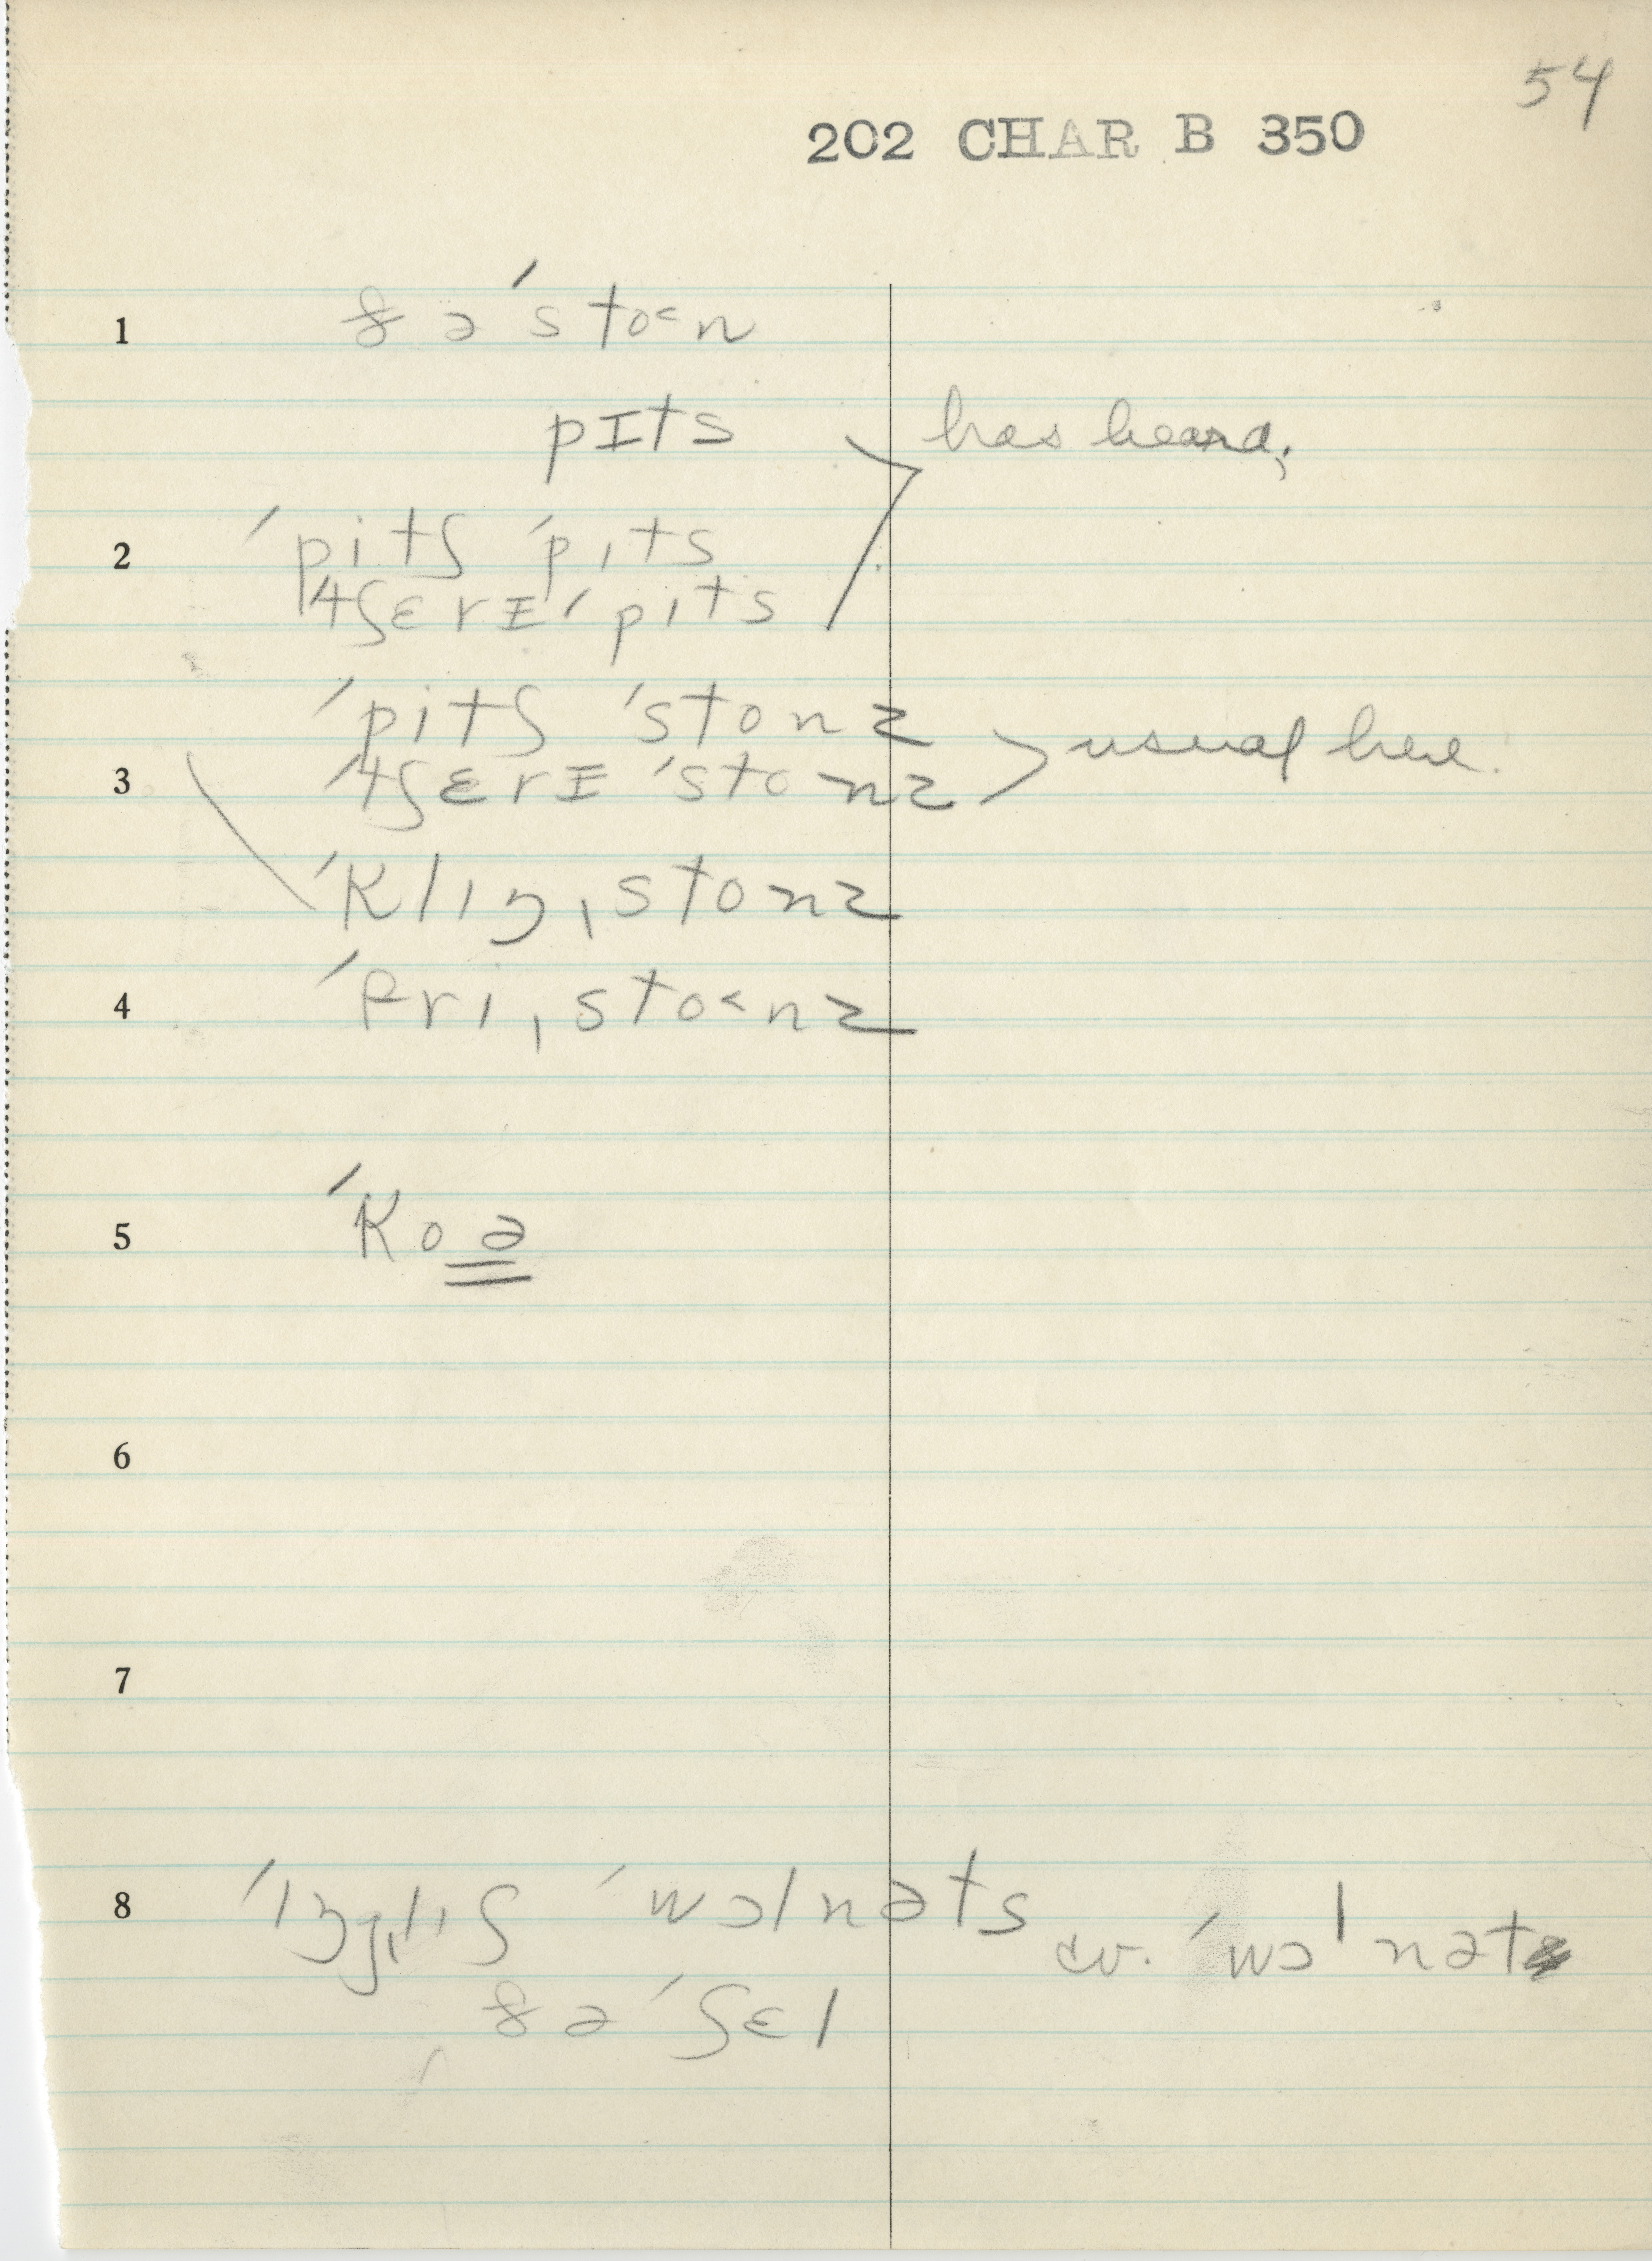 54
202 CHAR B 350
1 ðə ˈsto˂n
pɪts
has heard;
2 ˈpitʃ ˈpɪts
ˈtʃɛrɪ ˈpɪts
ˈpitʃ ˈstonz
usual here.
3 ˈtʃɛrɪ ˈstonz
ˈklɪŋˌstonz
4 ˈfriˌsto˂nz
5 ˈkoə
6
7
8 ˈɪŋˌglɪʃ ˈwɔlnəts
cv. ˈwɔlnət
ðə ˈʃɛl